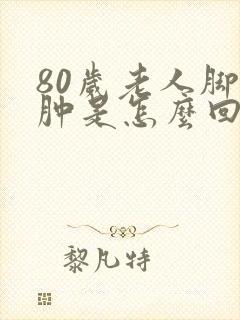 80歲老人脚
肿是怎麼回
黎凡特